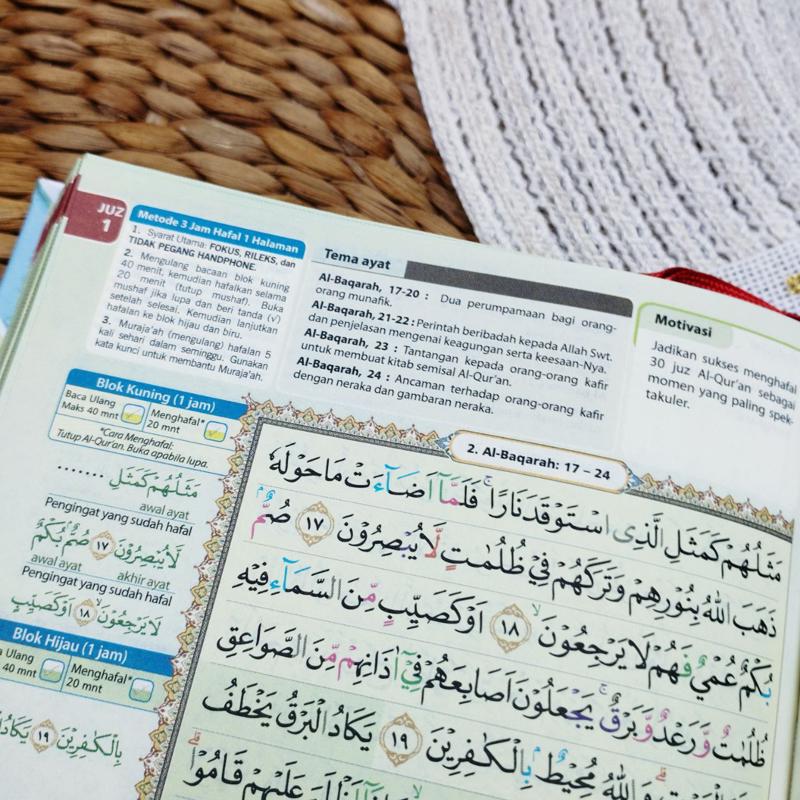 JUZ
1
Metode 3 Jam Hafal 1 Halaman
1. Syarat Utama: FOKUS, RILEKS, dan
TIDAK PEGANG HANDPHONE.
2. Mengulang bacaan blok kuning
40 menit, kemudian hafalkan selama
20 menit (tutup mushaf). Buka
mushaf jika lupa dan beri tanda (√)
setelah selesai. Kemudian lanjutkan
hafalan ke blok hijau dan biru.
3. Muraja'ah (mengulang) hafalan 5
kali sehari dalam seminggu. Gunakan
kata kunci untuk membantu Muraja'ah.
Tema ayat
Al-Baqarah, 17-20 : Dua perumpamaan bagi orang-
orang munafik.
Al-Baqarah, 21-22 : Perintah beribadah kepada Allah Swt.
dan penjelasan mengenai keagungan serta keesaan-Nya.
Al-Baqarah, 23 : Tantangan kepada orang-orang kafir
untuk membuat kitab semisal Al-Qur'an.
Al-Baqarah, 24 : Ancaman terhadap orang-orang kafir
dengan neraka dan gambaran neraka.
Motivasi
Jadikan sukses menghafal
30 juz Al-Qur'an sebagai
momen yang paling spek-
takuler.
Blok Kuning (1 jam)
Baca Ulang
Maks 40 mnt
Menghafal*
20 mnt
*Cara Menghafal:
Tutup Al-Qur'an. Buka apabila lupa.
مَثَلُهُمْ كَمَثَلِ .......
awal ayat
Pengingat yang sudah hafal
لَا يُبْصِرُوْنَ ١٧ صُمٌّ بُكْمٌ
awal ayat akhir ayat
Pengingat yang sudah hafal
لَا يَرْجِعُوْنَۙ ١٨ اَوْ كَصَيِّبٍ
Blok Hijau (1 jam)
Ulang
40 mnt
Menghafal*
20 mnt
بِالْكٰفِرِيْنَ ١٩ يَكَادُ
2. Al-Baqarah: 17 – 24
مَثَلُهُمْ كَمَثَلِ الَّذِى اسْتَوْقَدَ نَارًاۚ فَلَمَّآ اَضَاۤءَتْ مَا حَوْلَهٗ
ذَهَبَ اللّٰهُ بِنُوْرِهِمْ وَتَرَكَهُمْ فِيْ ظُلُمٰتٍ لَّا يُبْصِرُوْنَ ١٧ صُمٌّۢ
بُكْمٌ عُمْيٌ فَهُمْ لَا يَرْجِعُوْنَۙ ١٨ اَوْ كَصَيِّبٍ مِّنَ السَّمَاۤءِ فِيْهِ
ظُلُمٰتٌ وَّرَعْدٌ وَّبَرْقٌۚ يَجْعَلُوْنَ اَصَابِعَهُمْ فِيْٓ اٰذَانِهِمْ مِّنَ الصَّوَاعِقِ
وَاللّٰهُ مُحِيْطٌۢ بِالْكٰفِرِيْنَ ١٩ يَكَادُ الْبَرْقُ يَخْطَفُ
عَلَيْهِمْ قَامُوْاۗ